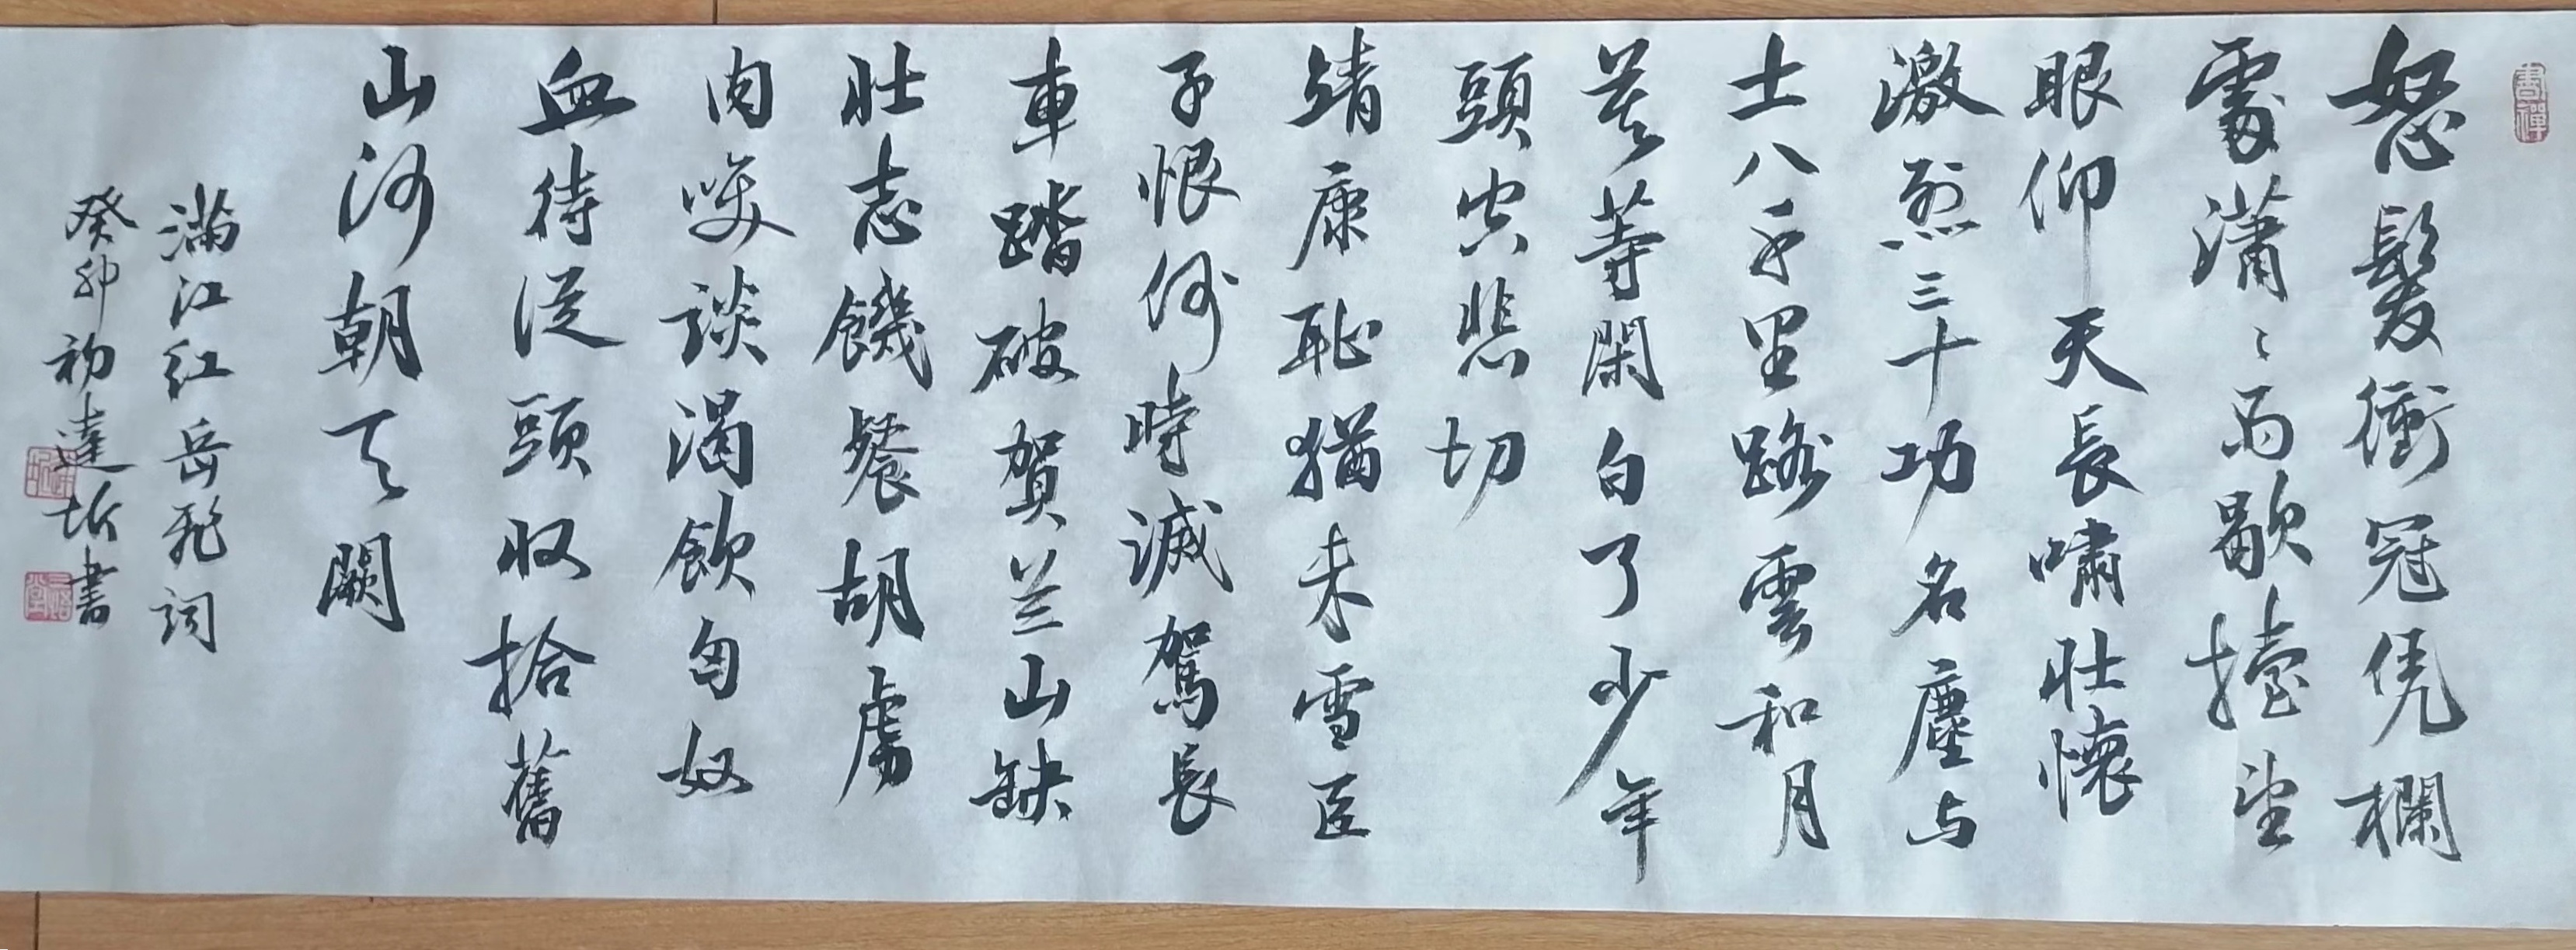 書禪
怒髮衝冠凭欄
處瀟〻雨歇擡望
眼仰天長嘯壯懷
激烈三十功名塵与
土八千里路雲和月
莫等閑白了少年
頭空悲切
靖康恥猶未雪臣
子恨何時滅駕長
車踏破賀兰山缺
壯志饑餐胡虜
肉笑談渴飲匈奴
血待從頭收拾舊
山河朝天闕
滿江红岳飛词
癸卯初達圻書